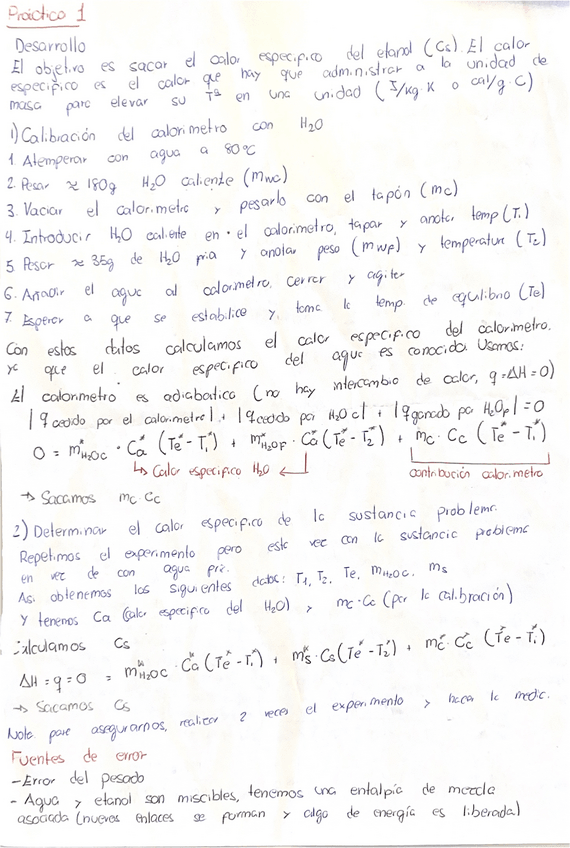 Práctica 1
Desarrollo
El objetivo es sacar el calor específico del etanol (Cs). El calor
específico es el calor que hay que administrar a la unidad de
masa para elevar su Tª en una unidad (J/kg·K o cal/g·C)
1) Calibración del calorimetro con H2O
1. Atemperar con agua a 80ºC
2. Pesar ≈ 180g H2O caliente (mwc)
3. Vaciar el calorimetro y pesarlo con el tapón (mc)
4. Introducir H2O caliente en el calorimetro, tapar y anotar temp (T1)
5. Pesar ≈ 35g de H2O fria y anotar peso (mwf) y temperatura (T2)
6. Añadir el agua al calorimetro, cerrar y agitar
7. Esperar a que se estabilice y tomar la temp. de equilibrio (Te)
Con estos datos calculamos el calor especifico del calorimetro.
ya que el calor especifico del agua es conocido. Usamos:
El calorimetro es adiabatico (no hay intercambio de calor, q=ΔH=0)
|q cedido por el calorimetro| + |q cedido por H2Oc| + |q ganado por H2Of| = 0
0 = m*H2Oc · Ca* (Te* - T1*) + m*H2Of · Ca* (Te* - T2*) + mc · Cc (Te* - T1*)
↳ Calor especifico H2O ↵ contribución calorimetro
→ Sacamos mc·Cc
2) Determinar el calor especifico de la sustancia problema.
Repetimos el experimento pero esta vez con la sustancia problema
en vez de con agua fria.
Asi obtenemos los siguientes datos: T1, T2, Te, mH2Oc, ms
Y tenemos Ca (calor especifico del H2O) y mc·Cc (por la calibración)
Calculamos Cs
ΔH = q = 0 = m*H2Oc · Ca* (Te* - T1*) + ms* · Cs (Te* - T2*) + mc* · Cc* (Te* - T1*)
→ Sacamos Cs
Nota: para asegurarnos, realizar 2 veces el experimento y hacer la media.
Fuentes de error
- Error del pesado
- Agua y etanol son miscibles, tenemos una entalpía de mezcla
asociada (nuevos enlaces se forman y algo de energía es liberada)